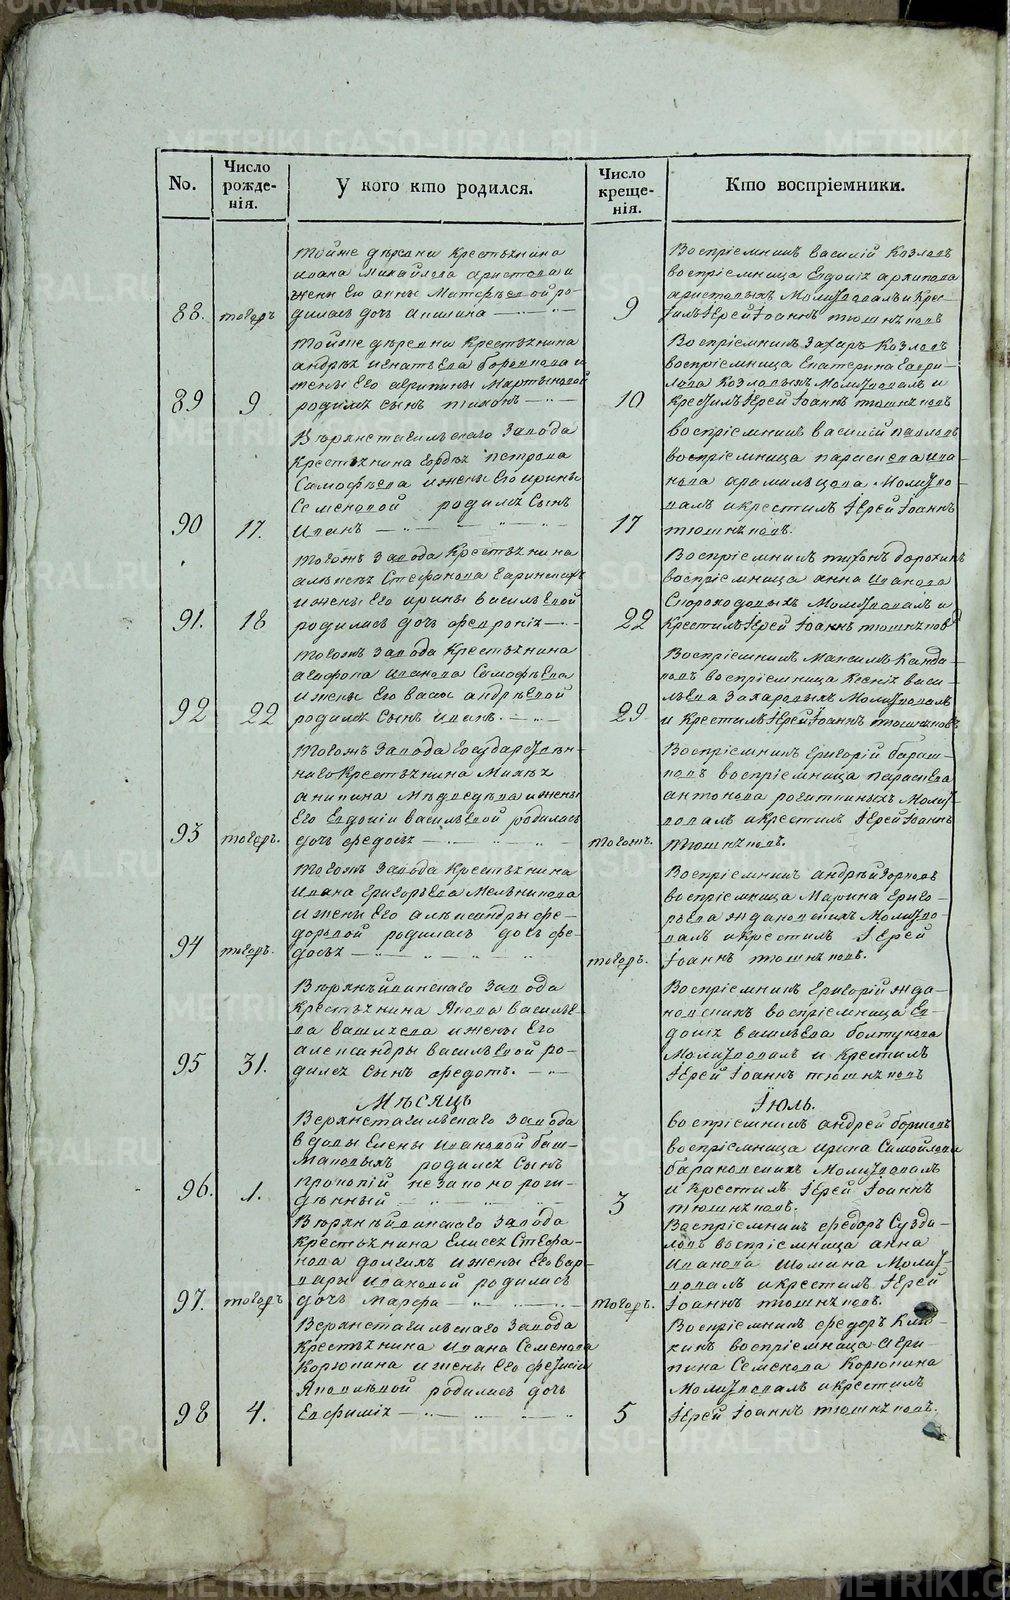 No.
Число рожде-
нія.
У кого кто родился.
Число креще-
нія.
Кто воспріемники.
тойже деревни крестьянина
ивана михайлова аристова и
жены его анны матфеевой ро-
88. тогож дилась дочь
воспріемникъ василій козловъ
воспріемница евдокія архипова
аристовыхъ молитвовалъ и крес-
9 тилъ Іерей Іоаннъ тюшняковъ
тойже деревни крестьянина
андрея игнатьева бороднова и
жены его агрипины мартыновой
89 9 родился сынъ тихонъ
воспріемникъ захаръ козловъ
воспріемница екатерина гаври-
лова козловыхъ молитвовалъ и
10 крестилъ Іерей Іоаннъ тюшняковъ
верхнетагильскаго завода
крестьянина гордея петрова
самофеева и жены его ирины
семеновой родился сынъ
90 17. иванъ
воспріемникъ василій павловъ
воспріемница параскева ива-
нова арамильцова молитво-
валъ и крестилъ Іерей Іоаннъ
17 тюшняковъ.
тогожъ завода крестьянина
алексея стефанова
и жены его ирины васильевой
91. 18 родилась дочь феврония
воспріемникъ тихонъ дорохинъ
воспріемница анна иванова
скороходовыхъ молитвовалъ и
22 крестилъ Іерей Іоаннъ тюшняковъ
тогожъ завода крестьянина
агафона иванова самофеева
и жены его васы андреевой
92 22 родился сынъ иванъ.
воспріемникъ максимъ канда-
ковъ воспріемница ксенія васи-
льева захаровыхъ молитвовалъ
29 и крестилъ Іерей Іоаннъ тюшняковъ
тогожъ завода государствен-
наго крестьянина михея
аникина медведева и жены
его евдокіи васильевой родилась
93 тогож. дочь федосья
воспріемникъ григорій бараш-
ковъ воспріемница параскева
антонова рогаткиныхъ молит-
вовалъ и крестилъ Іерей Іоаннъ
тогож. тюшняковъ.
тогожъ завода крестьянина
ивана григорьева мельникова
и жены его александры фе-
доровой родилась дочь фе-
94 тогож. досья
воспріемникъ андрей горновъ
воспріемница марина григо-
рьева ждановскихъ молитво-
валъ и крестилъ Іерей
тогож. Іоаннъ тюшняковъ.
верхнейвинскаго завода
крестьянина якова василье-
ва и жены его
александры васильевой ро-
95 31. дился сынъ федотъ.
воспріемникъ григорій жда-
новскихъ воспріемница ев-
докія васильева болтунова
молитвовалъ и крестилъ
Іерей Іоаннъ тюшняковъ
Мѣсяцъ Іюль.
верхнетагильскаго завода
вдовы елены ивановой баш-
маковыхъ родился сынъ
прокопій незаконорож-
96. 1. денный
воспріемникъ андрей борисовъ
воспріемница ирина самойлова
барановскихъ молитвовалъ
и крестилъ Іерей Іоаннъ
3 тюшняковъ.
верхнейвинскаго завода
крестьянина елисея стефа-
нова долгихъ и жены его вар-
вары ивановой родилась
97. тогож дочь марфа
воспріемникъ федоръ сузда-
ловъ воспріемница анна
иванова шомина молит-
вовалъ и крестилъ Іерей
тогож. Іоаннъ тюшняковъ.
верхнетагильскаго завода
крестьянина ивана семенова
корюкина и жены его фетисьи
яковлевой родилась дочь
98 4. евфимія
воспріемникъ федоръ клю-
кинъ воспріемница агри-
пина семенова корюкина
молитвовалъ и крестилъ
5 Іерей Іоаннъ тюшняковъ.
METRIKI.GASO-URAL.RU